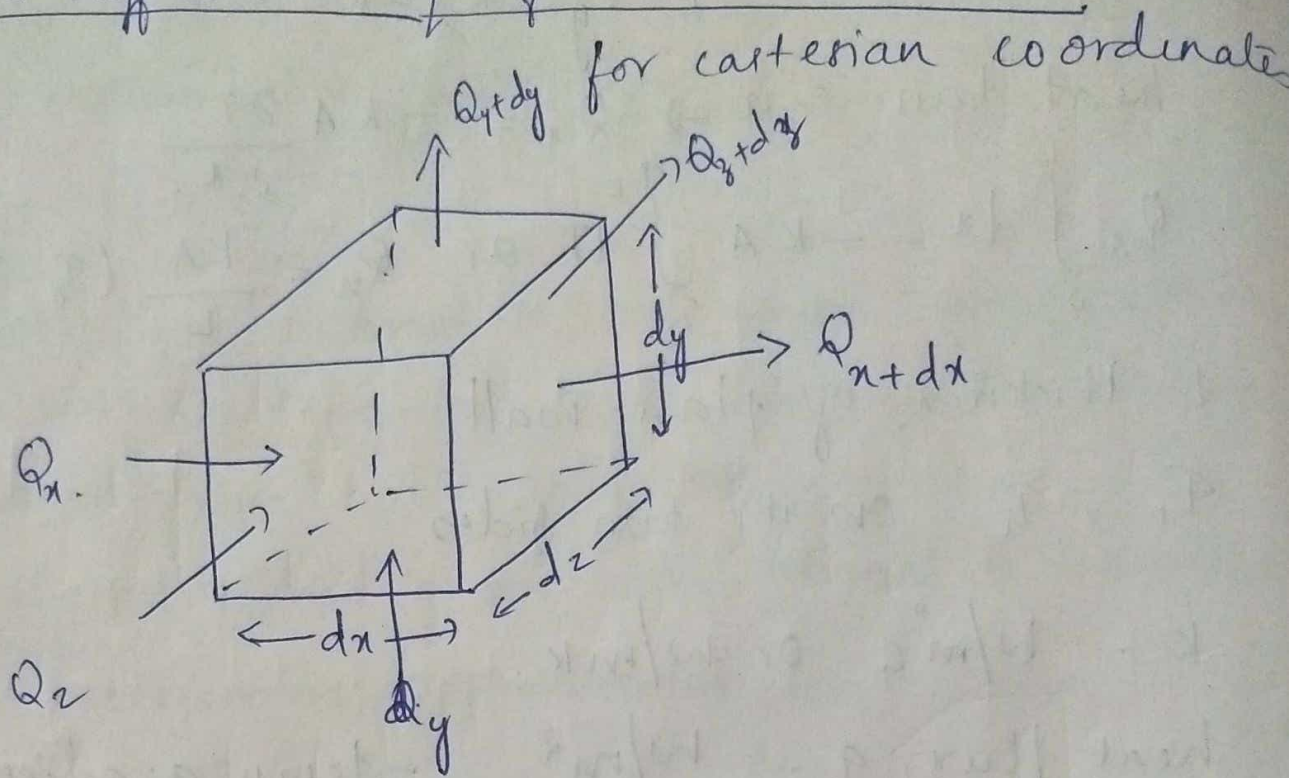 for casterian coordinates
Qy+dy
Qz+dz
dy
Qx+dx
Qx.
dz
dx
Qz
Qy